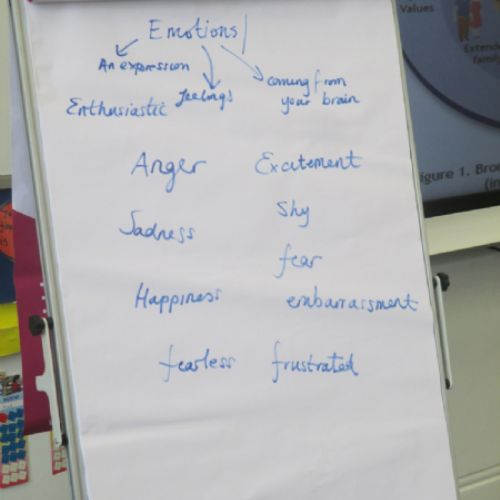 Emotions
An expression
feelings
coming from
your brain
Enthusiastic
Anger
Excitement
Sadness
Shy
fear
Happiness
embarrassment
fearless
frustrated
Values
Extende
family
igure 1. Bron
(in